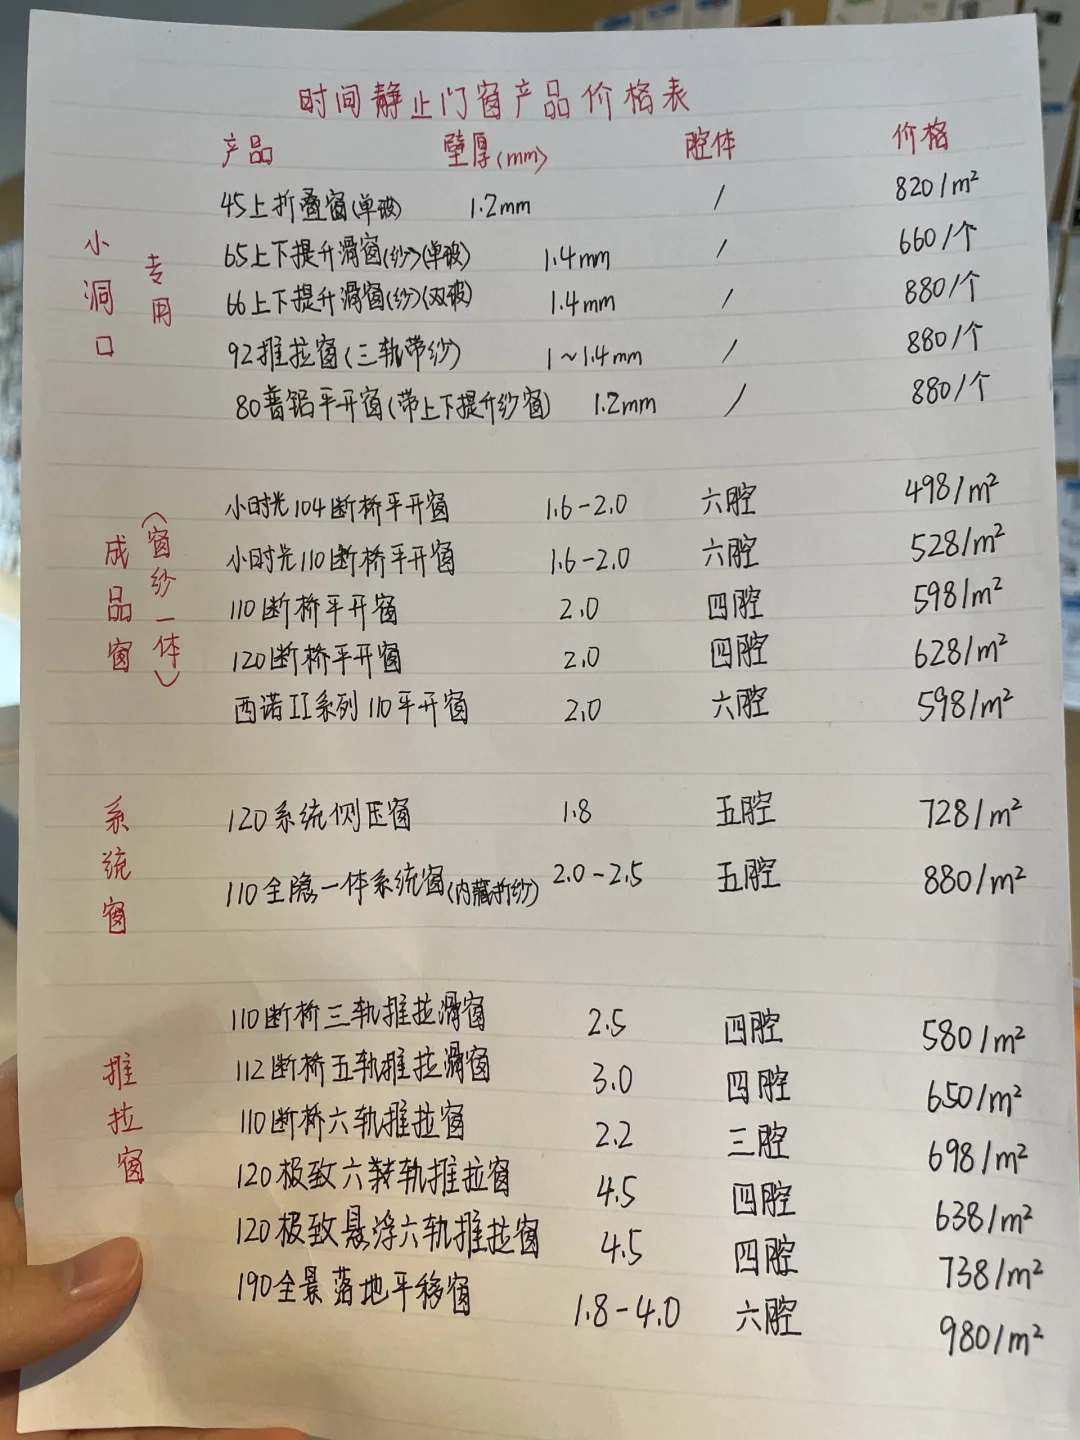 时间静止门窗产品价格表
产品 壁厚(mm) 腔体 价格
小洞口
专用
45上折叠窗(单玻) 1.2mm / 820/m²
65上下提升滑窗(纱)(单玻) 1.4mm / 660/个
66上下提升滑窗(纱)(双玻) 1.4mm / 880/个
92推拉窗(三轨带纱) 1~1.4mm / 880/个
80普铝平开窗(带上下提升纱窗) 1.2mm / 880/个
成品窗
(窗纱一体)
小时光104断桥平开窗 1.6-2.0 六腔 498/m²
小时光110断桥平开窗 1.6-2.0 六腔 528/m²
110断桥平开窗 2.0 四腔 598/m²
120断桥平开窗 2.0 四腔 628/m²
西诺II系列110平开窗 2.0 六腔 598/m²
系统窗
120系统侧压窗 1.8 五腔 728/m²
110全隐一体系统窗(内藏折纱) 2.0-2.5 五腔 880/m²
推拉窗
110断桥三轨推拉滑窗 2.5 四腔 580/m²
112断桥五轨推拉滑窗 3.0 四腔 650/m²
110断桥六轨推拉窗 2.2 三腔 698/m²
120极致六轨推拉窗 4.5 四腔 638/m²
120极致悬浮六轨推拉窗 4.5 四腔 738/m²
190全景落地平移窗 1.8-4.0 六腔 980/m²